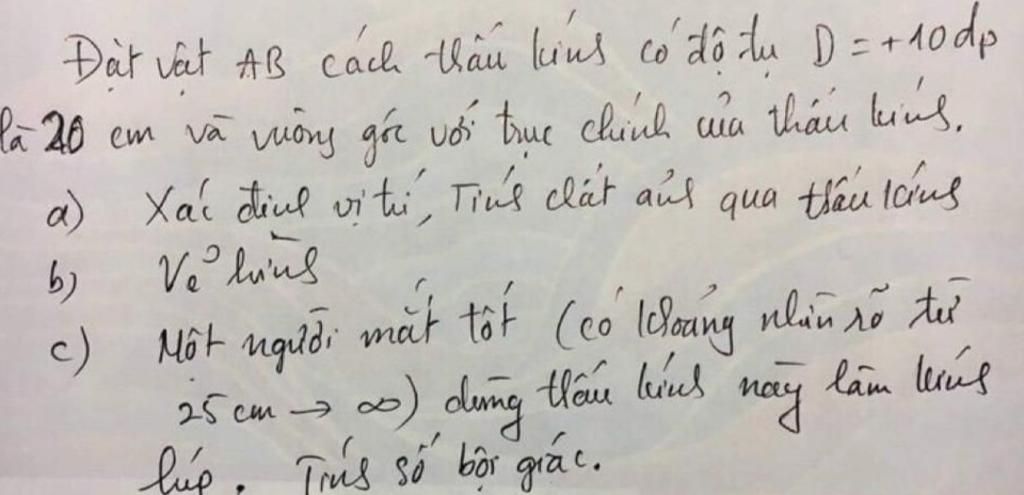 Đặt vật AB cách thấu kính có độ tụ D = +10 dp
là 20 cm và vuông góc với trục chính của thấu kính.
a) Xác định vị trí, Tính chất ảnh qua thấu kính
b) Vẽ hình
c) Một người mắt tốt (có khoảng nhìn rõ từ
25 cm → ∞) dùng thấu kính này làm kính
lúp. Tính số bội giác.